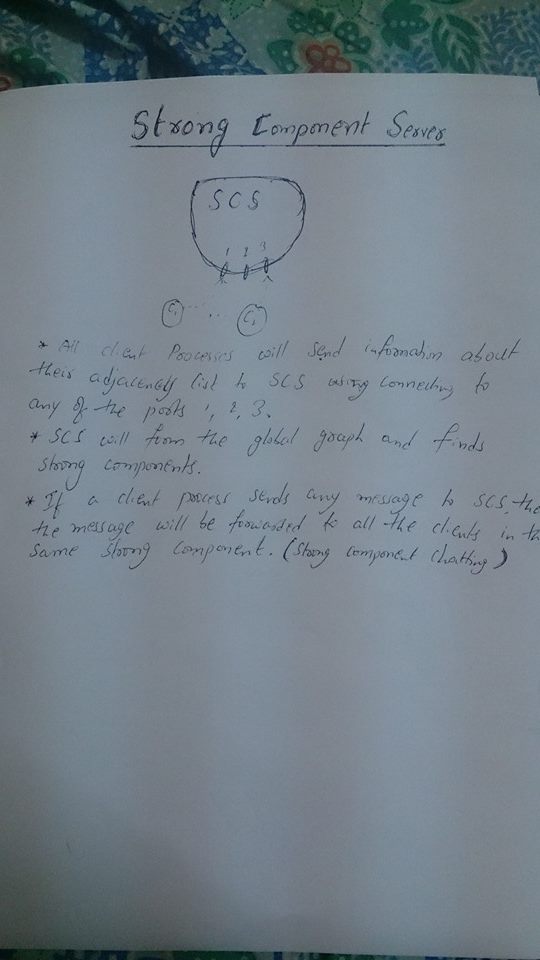 Strong Component Server
SCS
1 2 3
C1 Ci
* All client Processes will send information about
their adjacency list to SCS using connecting to
any of the ports 1, 2, 3.
* SCS will form the global graph and finds
strong components.
* If a client process sends any message to SCS, the
the message will be forwarded to all the clients in th
same strong component. (strong component chatting)